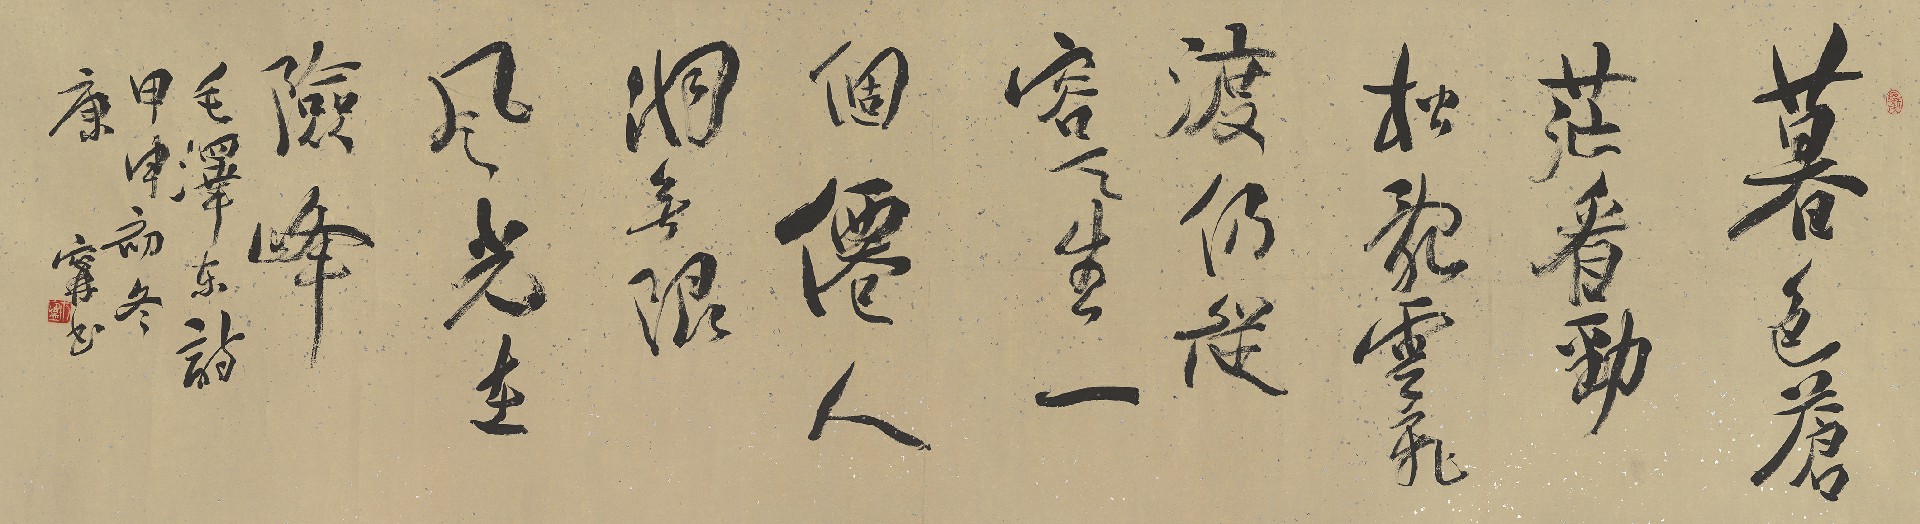 暮色蒼
茫看勁
松亂雲飛
渡仍從
容天生一
個僊人
洞無限
风光在
險峰
毛澤东詩
甲申初冬
康寧书